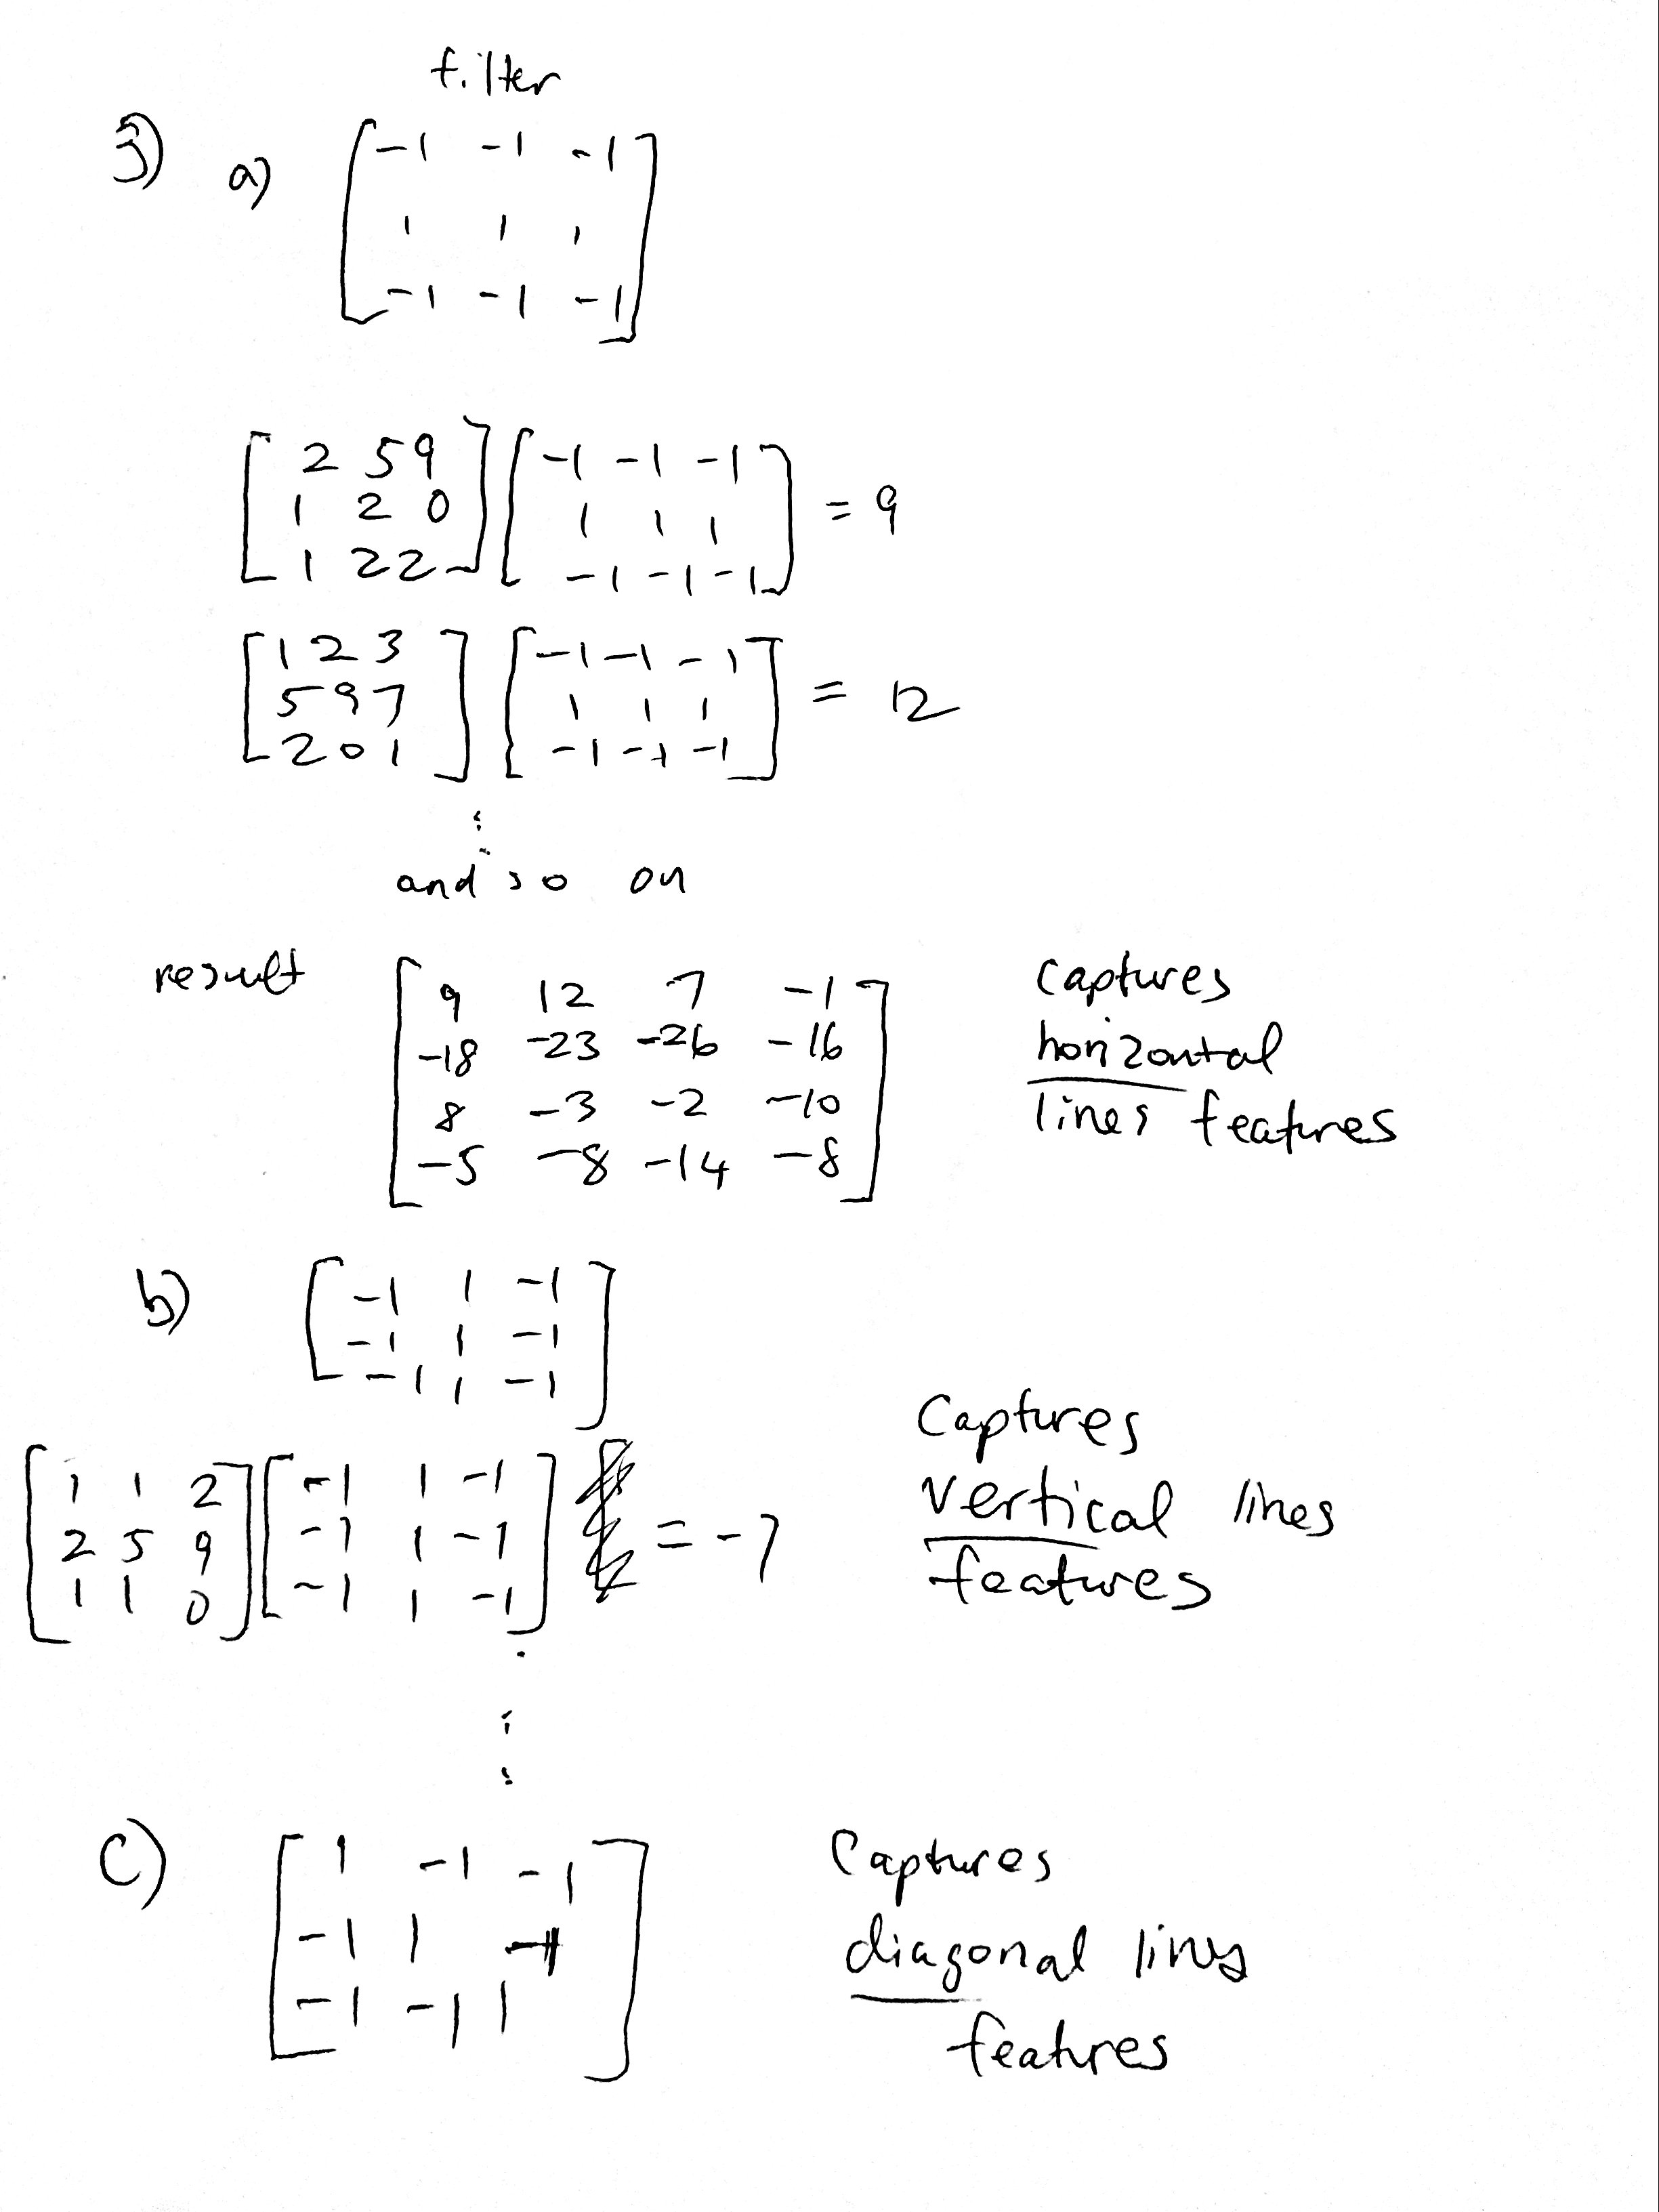 filter
3) a) [-1 -1 -1
1 1 1
-1 -1 -1]
[2 5 9
1 2 0
1 2 2] [-1 -1 -1
1 1 1
-1 -1 -1] = 9
[1 2 3
5 9 7
2 0 1] [-1 -1 -1
1 1 1
-1 -1 -1] = 12
⋮
and so on
result [9 12 7 -1
-18 -23 -26 -16
8 -3 -2 -10
-5 -8 -14 -8]
Captures
horizontal
lines features
b) [-1 1 -1
-1 1 -1
-1 1 -1]
[1 1 2
2 5 9
1 1 0] [-1 1 -1
-1 1 -1
-1 1 -1] = -7
Captures
vertical lines
features
⋮
c) [1 -1 -1
-1 1 -1
-1 -1 1]
Captures
diagonal lines
features